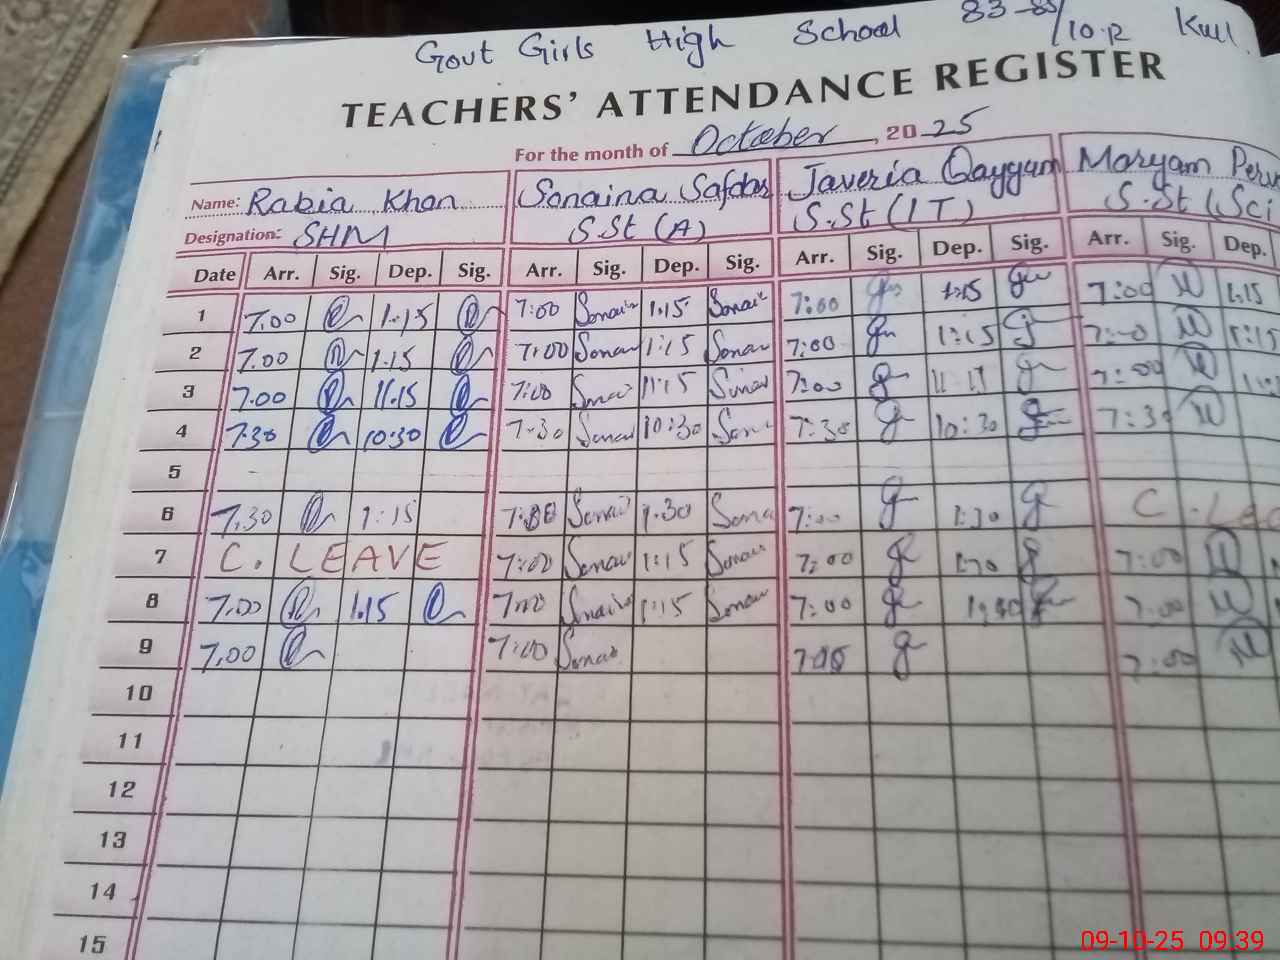 Govt Girls High School 83-85/10.R Kwl.
TEACHERS' ATTENDANCE REGISTER
For the month of October, 2025
Name: Rabia Khan Sonaina Safdar Javeria Qayyum Maryam Perv
Designation: SHM S.St (A) S.St (IT) S.St (Sci
Date Arr. Sig. Dep. Sig. Arr. Sig. Dep. Sig. Arr. Sig. Dep. Sig. Arr. Sig. Dep.
1 7.00 1.15 7:00 Sonai 1.15 Sonai 7:00 1:15 7:00 1.15
2 7.00 1.15 7:00 Sonai 1:15 Sonai 7:00 1:15 7:00 1:15
3 7.00 11.15 7:00 Sonai 11:15 Sonai 7:00 11:15 7:00
4 7.30 10:30 7:30 Sonai 10:30 Sonai 7:30 10:30 7:30
5
6 7.30 1:15 Sonai 1.30 Sona 7:00 1:30 C. Lea
7 C. LEAVE 7:00 Sonai 1:15 Sonai 7:00 7:00
8 7.00 1.15 7:00 Sonai 1:15 Sonai 7:00 7:00
9 7.00 7:00 Sonai 7:00
10
11
12
13
14
15
09-10-25 09:39